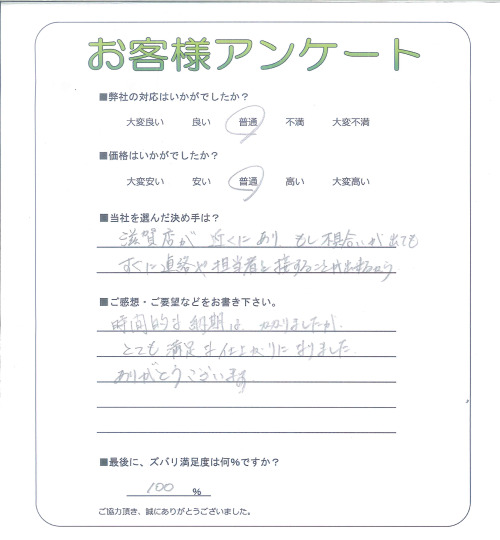 お客様アンケート
■弊社の対応はいかがでしたか？
大変良い 良い 普通 不満 大変不満
■価格はいかがでしたか？
大変安い 安い 普通 高い 大変高い
■当社を選んだ決め手は？
滋賀店が 近くにあり もし不具合いが出ても
すぐに連絡や担当者と接することが出来るよう
■ご感想・ご要望などをお書き下さい。
時間的な納期は かかりましたが、
とても 満足な仕上がりになりました.
ありがとうございます
■最後に、ズバリ満足度は何％ですか？
100 ％
ご協力頂き、誠にありがとうございました。